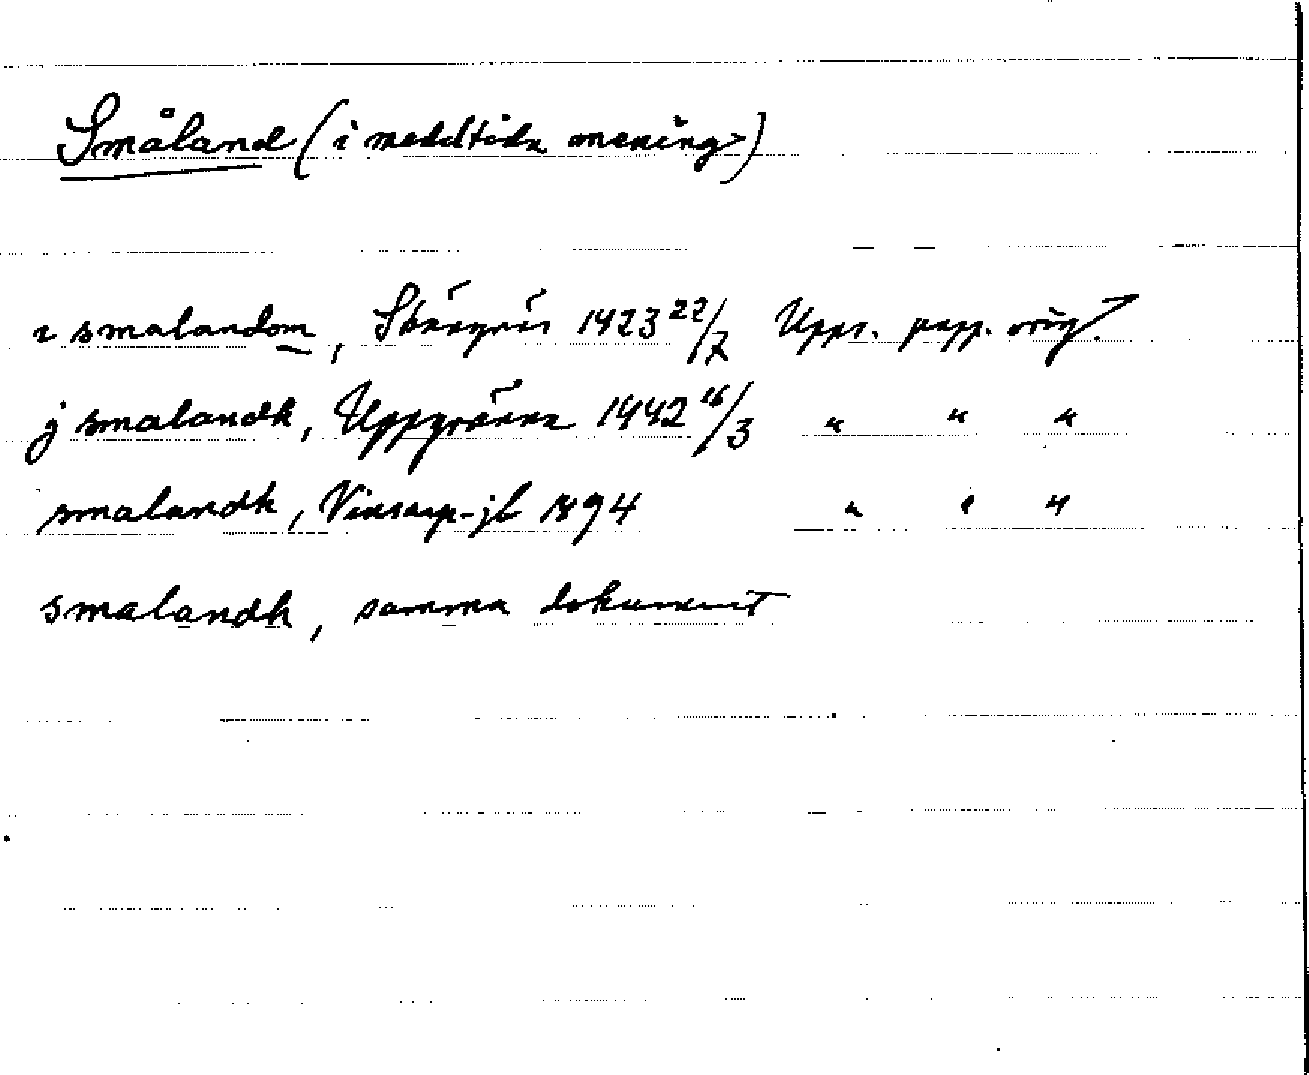 Småland (i medeltida mening)
i smalandom, 1423 22/7 Upps. papp. orig.
j smalandh, Uppgränna 1442 16/3 " " "
smalandh, jb 1494 " " "
smalandh, samma dokument